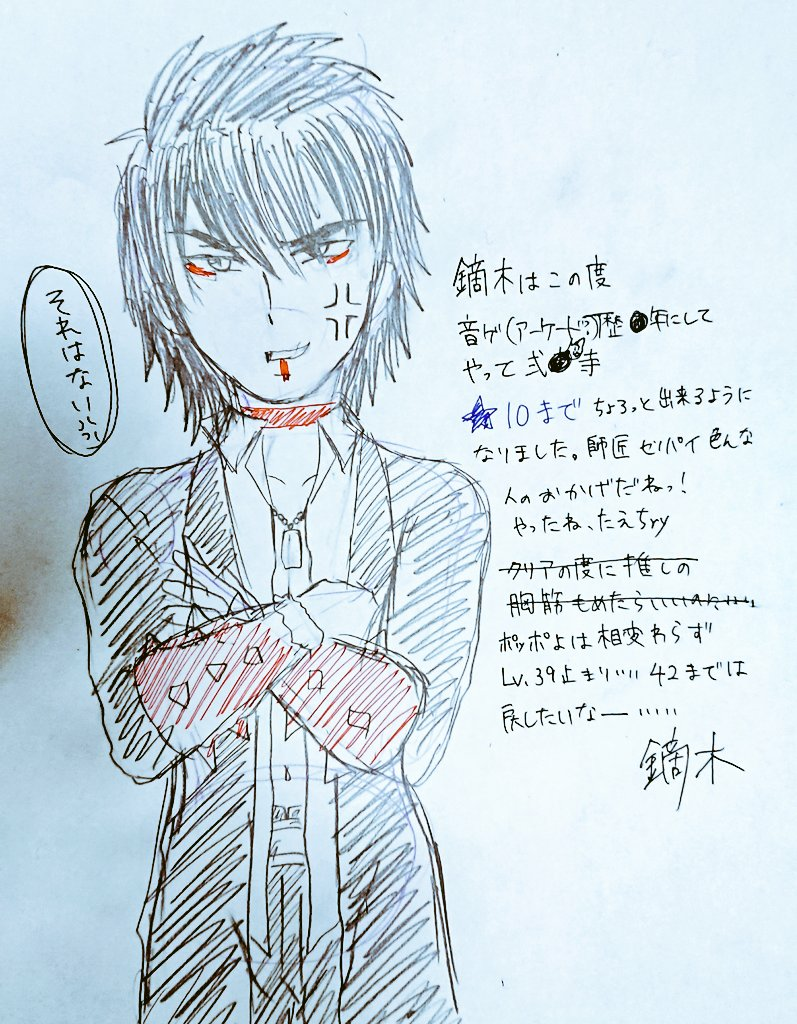 それはないッっ
鏑木はこの度
音ゲ(アーケード?)歴●年にして
やって弐寺
☆10まで ちょろっと出来るように
なりました。師匠 ゼパイ 色んな
人のおかげだねっ!
やったね、たえちry
クリアの度に推しの
胸筋もめたらいいのに……
ポッポよは相変わらず
Lv.39止まり…… 42までは
戻したいなー……
鏑木